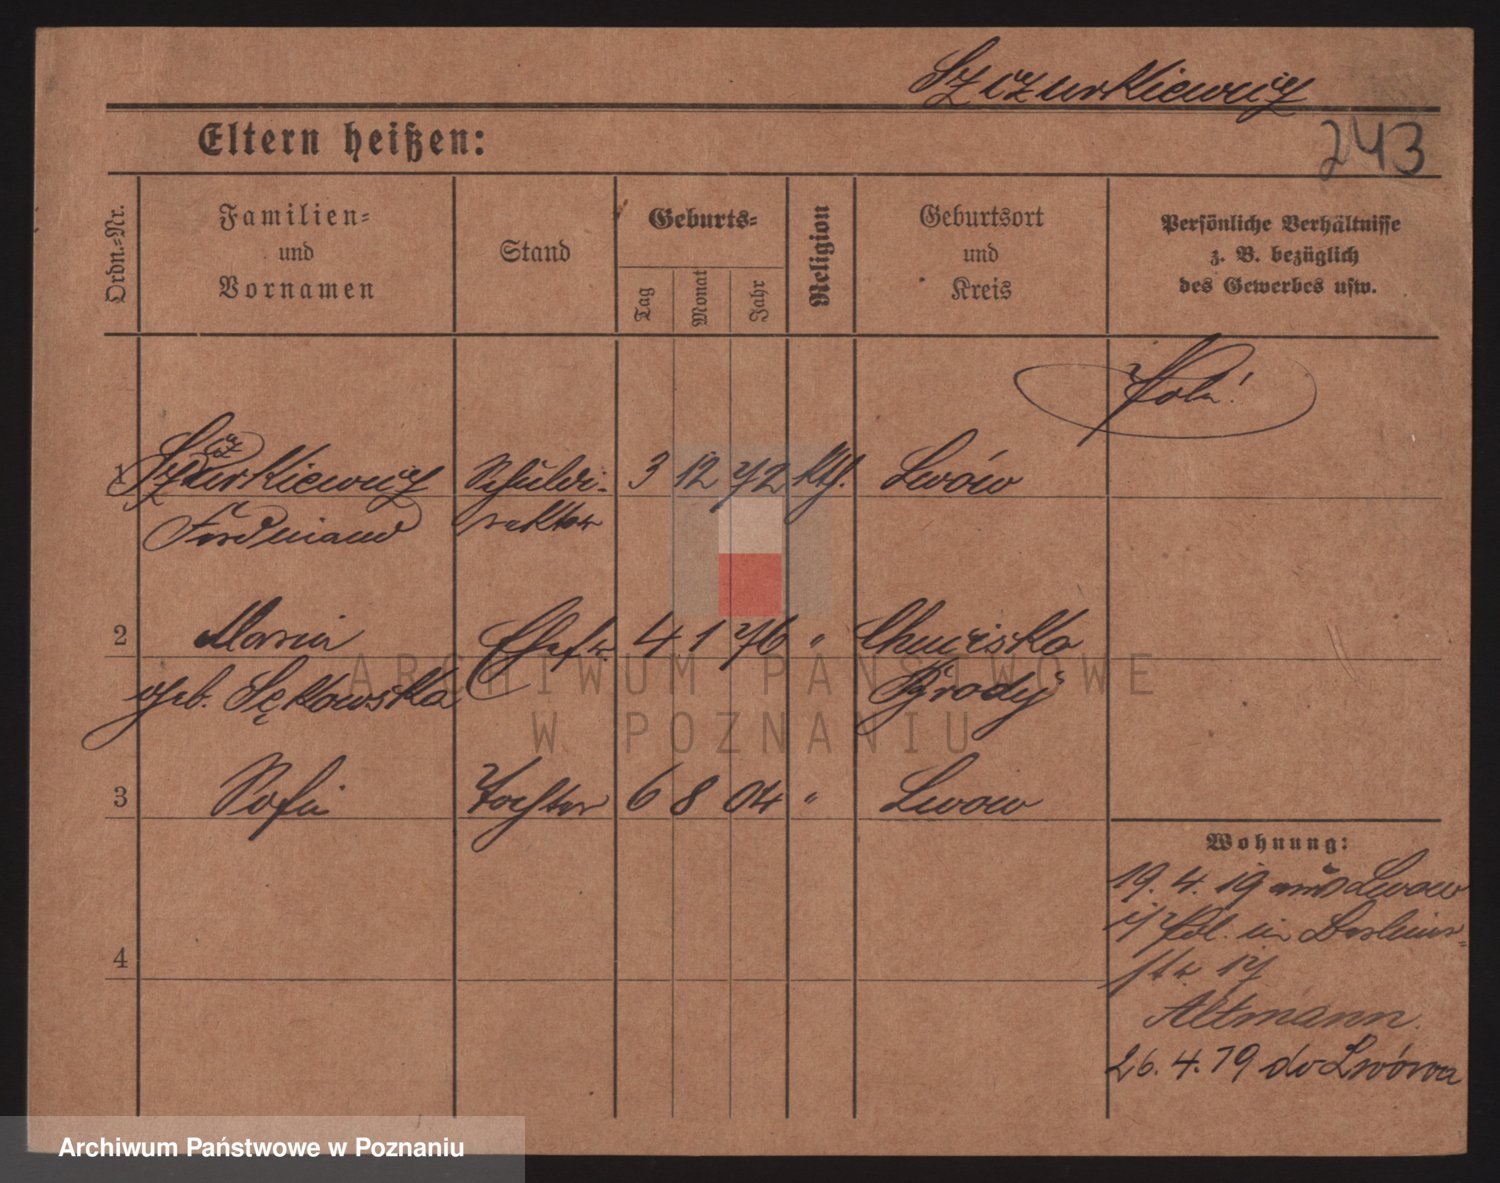 Szczurkiewicz
Eltern heißen:
243
Ordn.-Nr.
Familien-
und
Vornamen
Stand
Geburts-
Tag
Monat
Jahr
Religion
Geburtsort
und
Kreis
Persönliche Verhältnisse
z. B. bezüglich
des Gewerbes usw.
1 Szczurkiewicz Schuldi- 3 12 72 kth. Lwów
Ferdinand rektor
2 Maria Ehefr. 4 1 76 "
geb. Sękowska Brody
3 Sofia Tochter 6 8 04 " Lwow
4
Wohnung:
19. 4. 19 aus Lwow
i/ Pol. in Berliner-
str 17
Altmann.
26. 4. 19 do Lwówa
ARCHIWUM PAŃSTWOWE
W POZNANIU
Archiwum Państwowe w Poznaniu